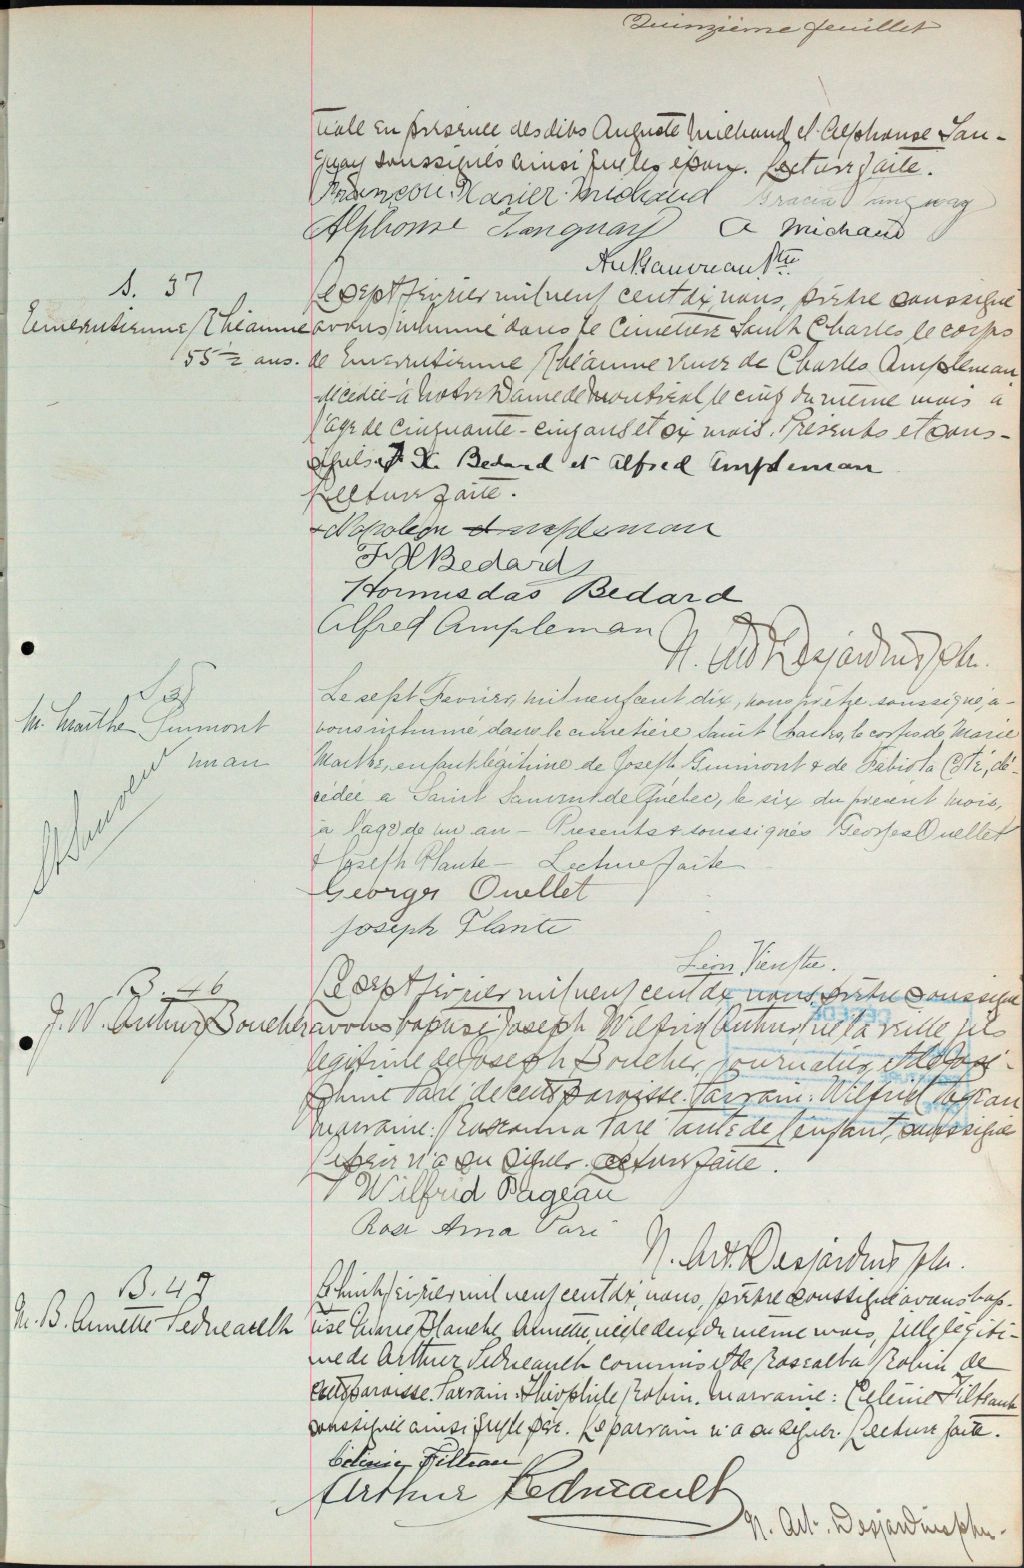 Quinzième feuillet
tiale en présence des dits Auguste Michaud et Alphonse Tan-
guay soussignés ainsi que les époux. Lecture faite.
François-Xavier Michaud Gracia Tanguay
Alphonse Tanguay A Michaud
Ptre
S. 37
Emerentienne Rhéaume
55 1/2 ans.
Le sept février mil neuf cent dix, nous, prêtre soussigné
avons inhumé dans le cimetière Saint Charles, le corps
de Emerentienne Rhéaume veuve de Charles Ampleman
décédée à Notre Dame de Montréal le cinq du même mois à
l'âge de cinquante-cinq ans et six mois. Présents et sous-
signés F X. Bedard et Alfred Ampleman
Lecture faite.
Napoleon Ampleman
F X Bedard
Hormisdas Bedard
Alfred Ampleman
N. Art Desjardins ptr.
M. Marthe Guimont
1 an an
St Sauveur
Le sept Fevrier, mil neuf cent dix, nous prêtre soussigné, a-
vons inhumé dans le cimetière Saint Charles, le corps de Marie
Marthe, enfant légitime de Joseph Guimont & de Fabiola Côté, dé-
cédée à Saint Sauveur de Québec, le six du présent mois,
à l'age de un an - Presents & soussignés Georges Ouellet
& Joseph Plante - Lecture faite
Georges Ouellet
Joseph Plante
Léon Vien ptre.
B. 46
J. W. Arthur Boucher
Le sept février mil neuf cent dix nous, prêtre soussigné
avons baptisé Joseph Wilfrid Arthur, né la veille, fils
légitime de Joseph Boucher, journalier, et de José-
phine Paré de cette paroisse. Parrain: Wilfrid Pageau
marraine: Roseanna Paré tante de l'enfant, soussignés
Le père n'a su signer. Lecture faite.
DÉCÉDÉ
Wilfrid Pageau
Rose Anna Paré
N. Art. Desjardins ptr.
B. 47
M. B. Annette Pedneault
Le huit février mil neuf cent dix, nous, prêtre soussigné avons bap-
tisé Marie Blanche Annette, née le deux du même mois, fille légiti-
me de Arthur Pedneault commis et de Rosealba Robin de
cette paroisse. Parrain: Théophile Robin. Marraine: Célénie Filteau
soussignée ainsi que le père. Le parrain n'a su signer. Lecture faite.
Célénie Filteau
Arthur Pedneault
N. Art. Desjardins ptr.